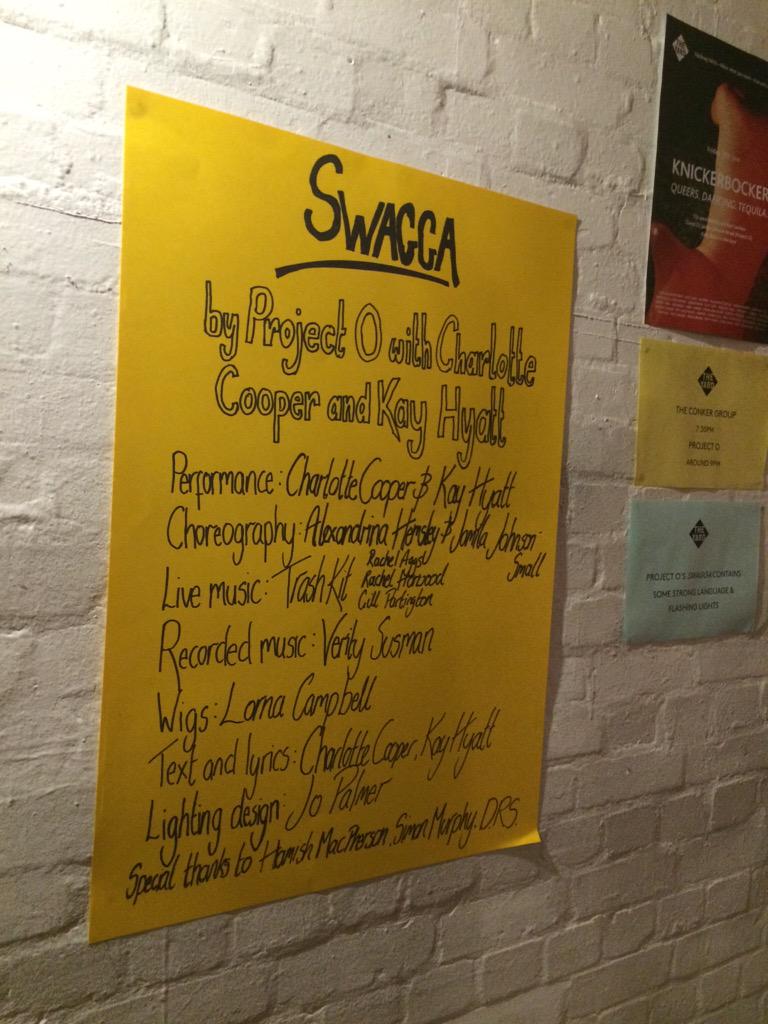 SWAGGA
by Project O with Charlotte
Cooper and Kay Hyatt
Performance: Charlotte Cooper & Kay Hyatt
Choreography: Alexandrina Hemsley & Jamila Johnson-
Small
Live music: Trash Kit
Rachel Aggs
Rachel Horwood
Gill Partington
Recorded music: Verity Susman
Wigs: Lorna Campbell
Text and lyrics: Charlotte Cooper, Kay Hyatt
Lighting design: Jo Palmer
Special thanks to Hamish MacPherson, Simon Murphy, DRS.
THE YARD
KNICKERBOCKER
QUEERS. DANCING. TEQUILA.
THE YARD
THE CONKER GROUP
7:30PM
PROJECT O
AROUND 9PM
THE YARD
PROJECT O'S SWAGGA CONTAINS
SOME STRONG LANGUAGE &
FLASHING LIGHTS